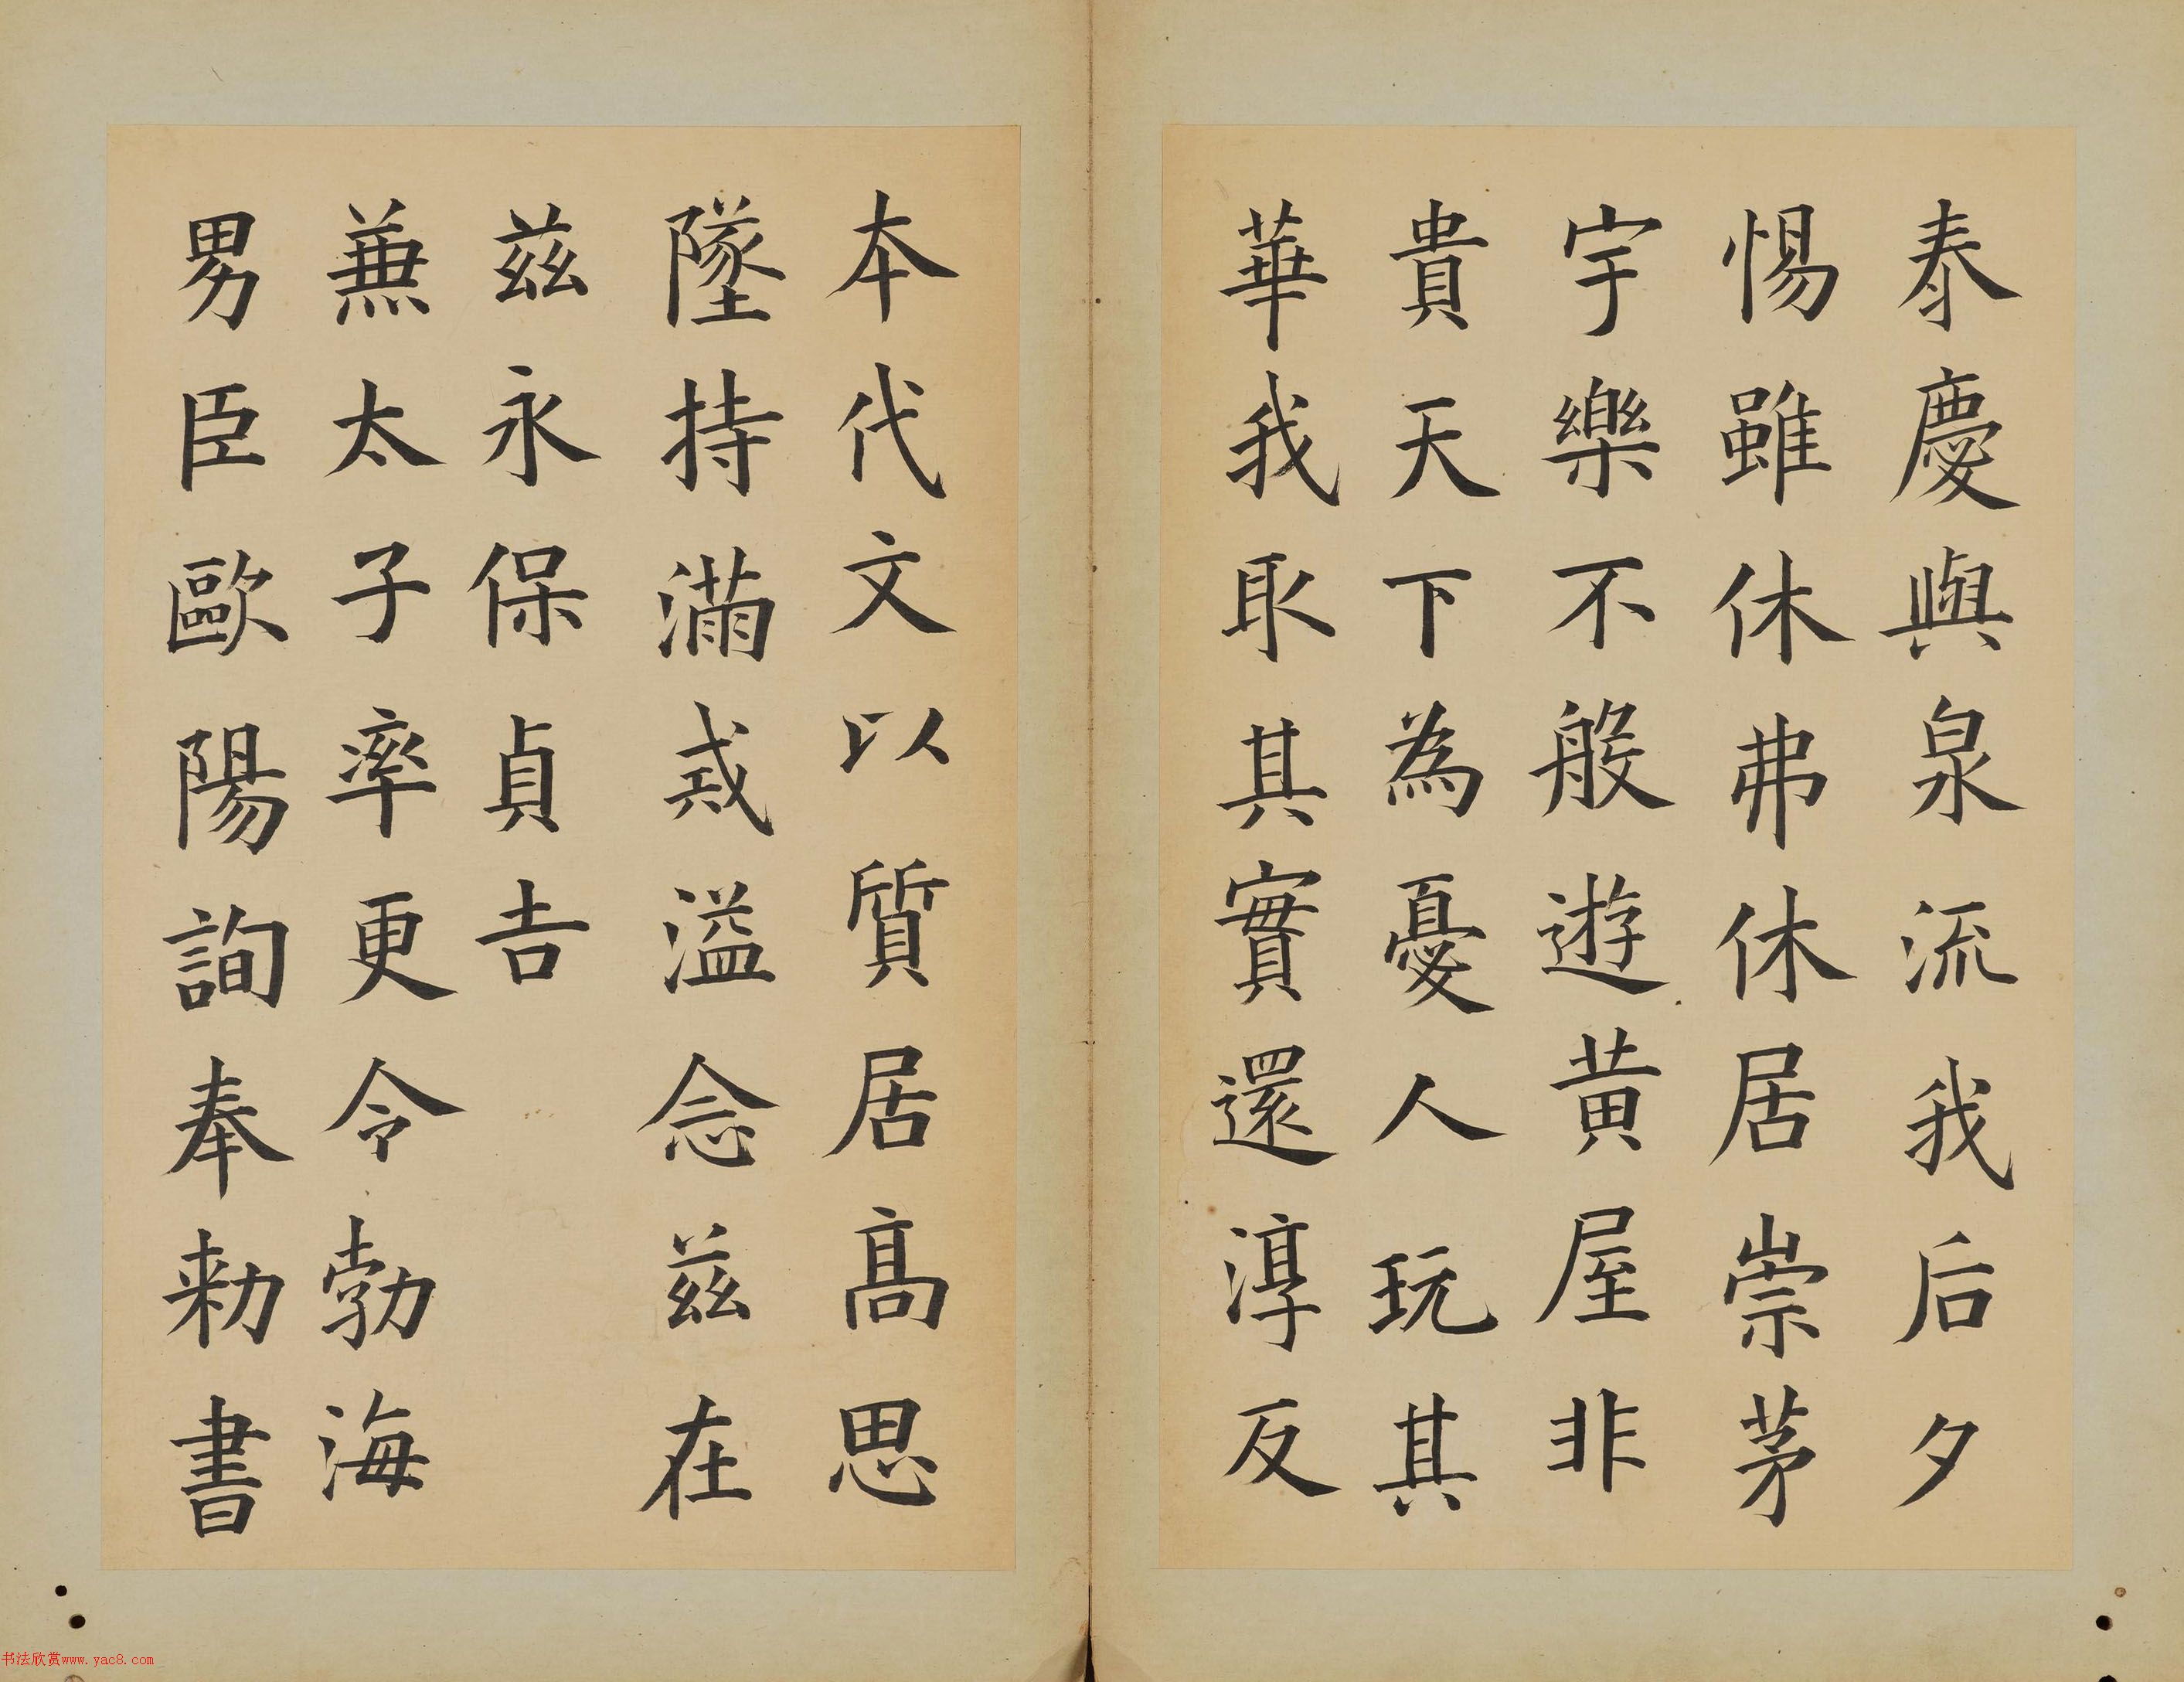 泰慶與泉流我后夕
惕雖休弗休居崇茅
宇樂不般遊黄屋非
貴天下為憂人玩其
華我取其實還淳反
本代文以質居高思
墜持滿戒溢念茲在
茲永保貞吉
兼太子率更令勃海
男臣歐陽詢奉勑書
书法欣赏www.yac8.com